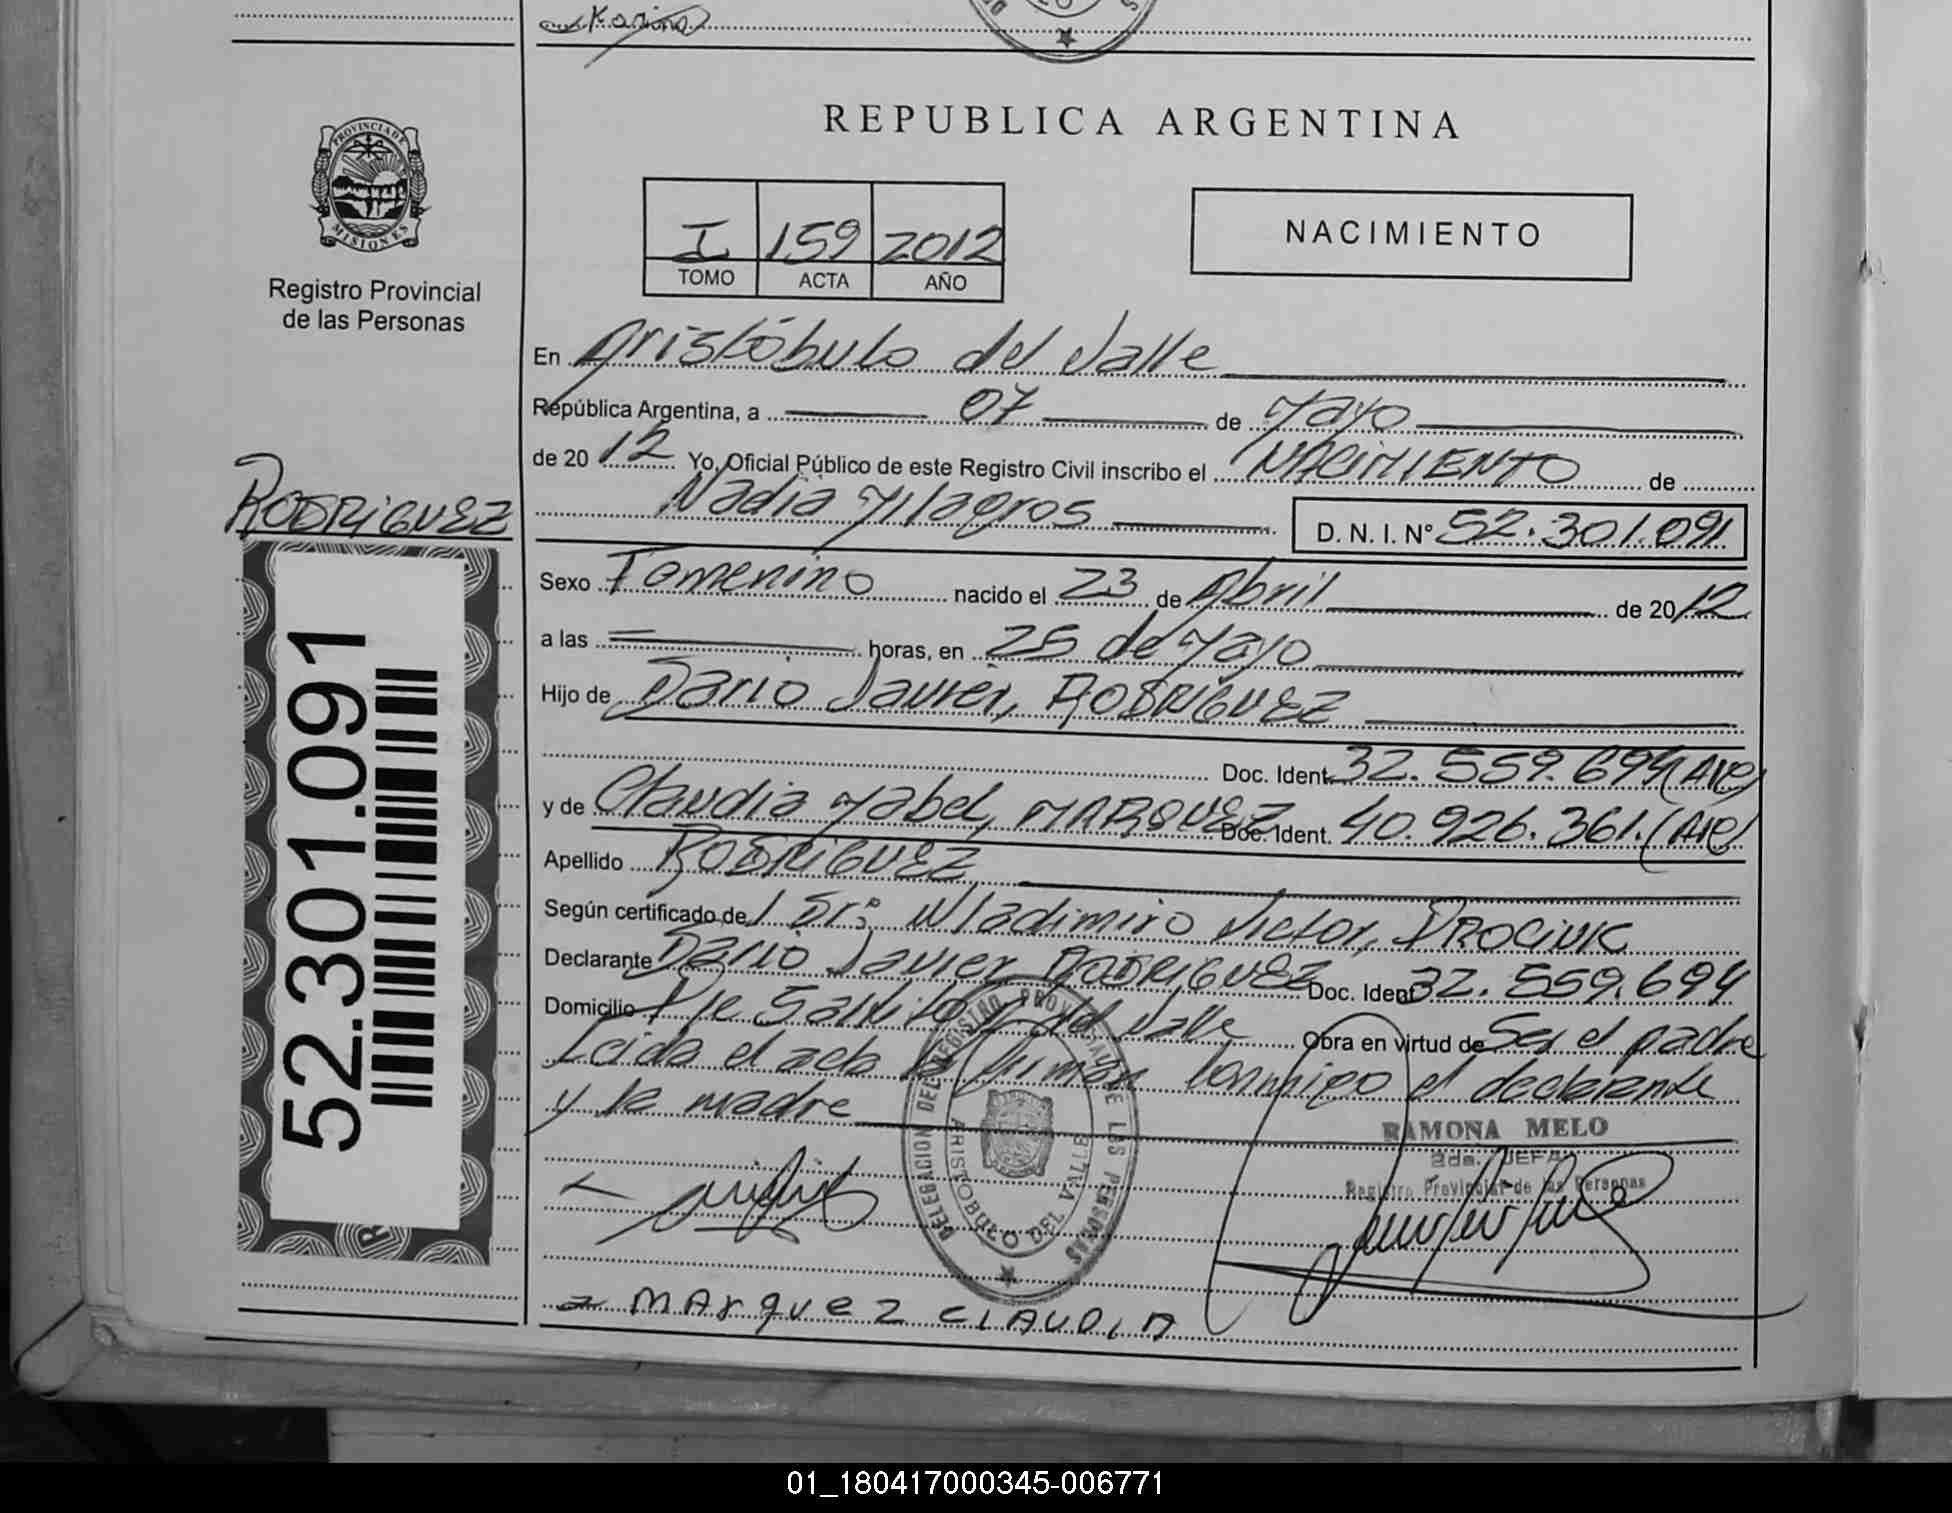 Karina
REPUBLICA ARGENTINA
PROVINCIA DE
MISIONES
Registro Provincial
de las Personas
I 159 2012
TOMO ACTA AÑO
NACIMIENTO
En Aristóbulo del Valle
República Argentina, a 07 de Mayo
de 20 12 Yo, Oficial Público de este Registro Civil inscribo el NACIMIENTO de
RODRIGUEZ
Nadia Milagros D. N. I. Nº 52.301.091
Sexo Femenino nacido el 23 de Abril de 20 12
a las horas, en 25 de Mayo
Hijo de Dario Javier, RODRIGUEZ
Doc. Ident. 32.559.694 (Arg)
y de Claudia Mabel, MARQUEZ Doc. Ident. 40.926.361. (Arg)
Apellido RODRIGUEZ
Según certificado de l Dr: Wladimiro Victor, PROCIUK
Declarante Dario Javier RODRIGUEZ Doc. Ident 32.559.694
Domicilio Pje Saltito A. del Valle Obra en virtud de Ser el padre
Leida el acta la firman conmigo el declarante
y la madre
52.301.091
RAMONA MELO
2da. JEFA
Registro Provincial de las Personas
DELEGACION DEL REGISTRO PROVINCIAL DE LAS PERSONAS
ARISTOBULO DEL VALLE
MArquez CLAUDIA
01_180417000345-006771